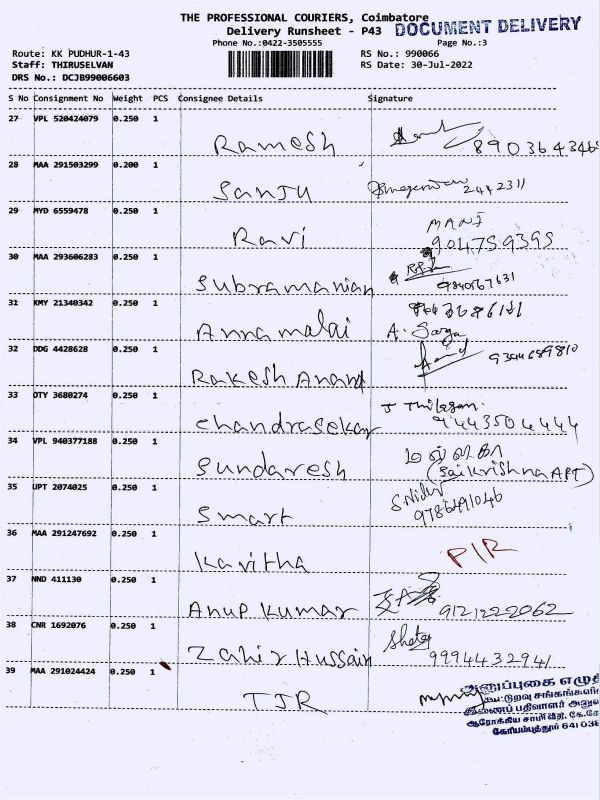 THE PROFESSIONAL COURIERS, Coimbatore
DOCUMENT DELIVERY
Delivery Runsheet - P43
Phone No.:0422-3505555 Page No.:3
Route: KK PUDHUR-1-43 RS No.: 990066
Staff: THIRUSELVAN RS Date: 30-Jul-2022
DRS No.: DCJB99006603
S No Consignment No Weight PCS Consignee Details Signature
27 VPL 520424079 0.250 1
Ramesh 8903643468
28 MAA 291503299 0.200 1
Sanju 2442311
29 MYD 6559478 0.250 1
MANI
Ravi 9047589395
30 MAA 293606283 0.250 1
Subramanian 9840567631
31 KMY 21340342 0.250 1
Annamalai A.
32 DDG 4428628 0.250 1
Rakesh Anand
33 OTY 3680274 0.250 1
J Thilagan
Chandrasekar 9443504444
34 VPL 940377188 0.250 1
Sundaresh (Saikrishna APT)
35 UPT 2074025 0.250 1
S.Nidhi
Smart 9786491046
36 MAA 291247692 0.250 1
Kavitha P/R
37 NND 411130 0.250 1
Anup Kumar 9121222062
38 CNR 1692076 0.250 1
Zahir Hussain 9994432941
39 MAA 291024424 0.250 1
TJR
அனுப்புகை எழுத
கூட்டுறவு சங்கங்களின்
இணைப் பதிவாளர் அலு
ஆரோக்கிய சாமி வீதி, கே.கே
கோயம்புத்தூர் 641 038